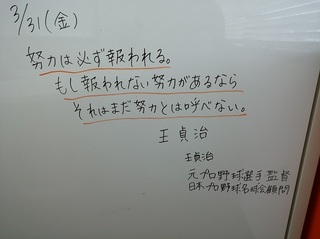 3/31(金)
努力は必ず報われる。
もし報われない努力があるなら
それはまだ努力とは呼べない。
王貞治
王貞治
元プロ野球選手監督
日本プロ野球名球会顧問